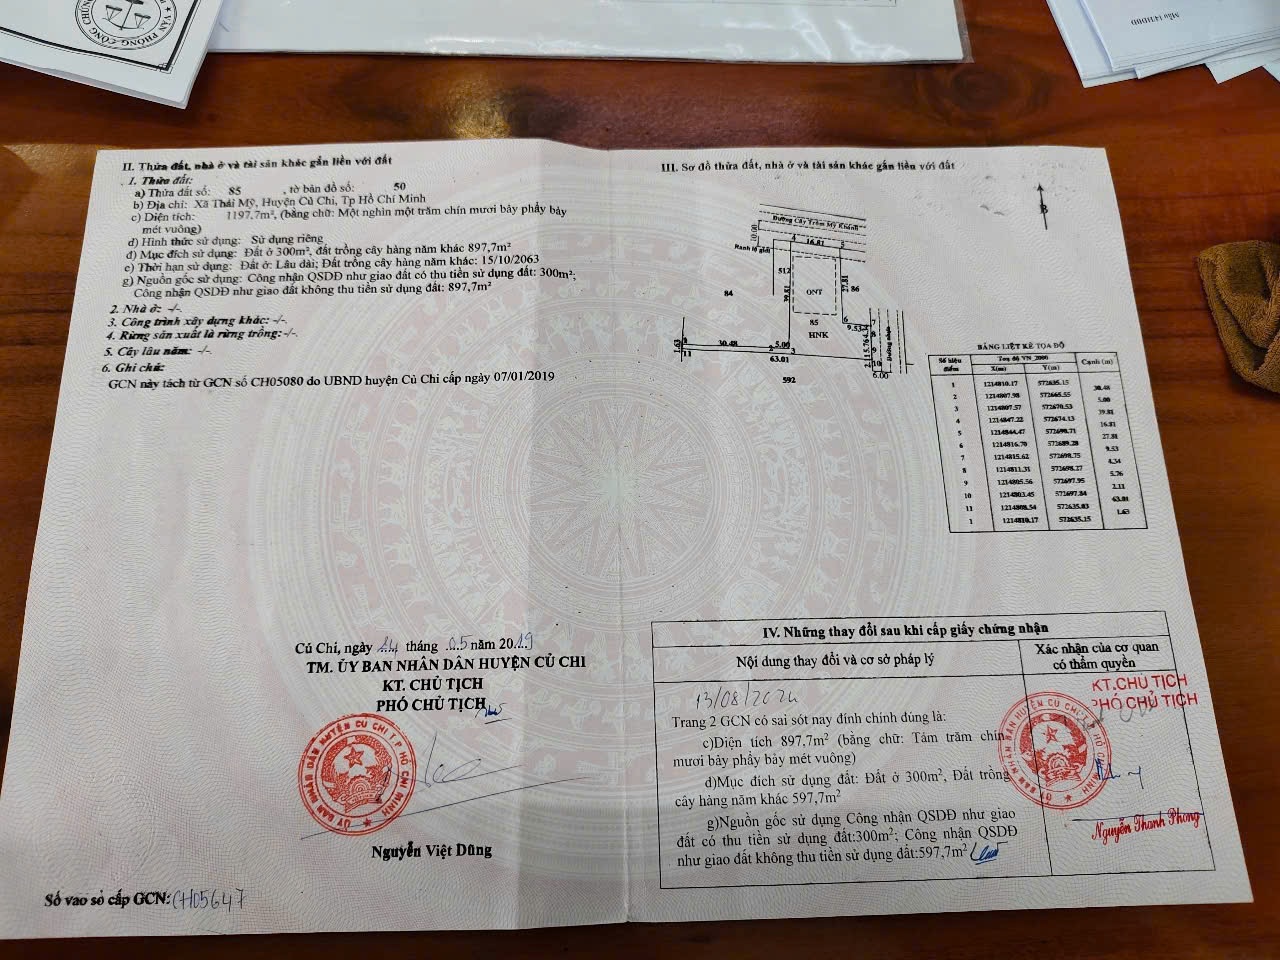 VĂN PHÒNG CÔNG CHỨNG
Mẫu 14/HĐĐ
II. Thửa đất, nhà ở và tài sản khác gắn liền với đất
1. Thửa đất:
a) Thửa đất số: 85 , tờ bản đồ số: 50
b) Địa chỉ: Xã Thái Mỹ, Huyện Củ Chi, Tp Hồ Chí Minh
c) Diện tích: 1197.7m², (bằng chữ: Một nghìn một trăm chín mươi bảy phẩy bảy
mét vuông)
d) Hình thức sử dụng: Sử dụng riêng
đ) Mục đích sử dụng: Đất ở 300m², đất trồng cây hàng năm khác 897,7m²
e) Thời hạn sử dụng: Đất ở: Lâu dài; Đất trồng cây hàng năm khác: 15/10/2063
g) Nguồn gốc sử dụng: Công nhận QSDĐ như giao đất có thu tiền sử dụng đất: 300m²;
Công nhận QSDĐ như giao đất không thu tiền sử dụng đất: 897,7m²
2. Nhà ở: -/-
3. Công trình xây dựng khác: -/-.
4. Rừng sản xuất là rừng trồng: -/-
5. Cây lâu năm: -/-.
6. Ghi chú:
GCN này tách từ GCN số CH05080 do UBND huyện Củ Chi cấp ngày 07/01/2019
Củ Chi, ngày 24 tháng 05 năm 2019
TM. ỦY BAN NHÂN DÂN HUYỆN CỦ CHI
KT. CHỦ TỊCH
PHÓ CHỦ TỊCH
ỦY BAN NHÂN DÂN HUYỆN CỦ CHI T.P HỒ CHÍ MINH
Nguyễn Việt Dũng
Số vào sổ cấp GCN: CH05647
III. Sơ đồ thửa đất, nhà ở và tài sản khác gắn liền với đất
B
Đường Cây Trôm Mỹ Khánh
10.00
Ranh lộ giới
4 16.81 5
512
39.81
27.81
84
86
ONT
85
HNK
6
9.53
7
8
9
10
Đường nhựa
1.63
1
11
30.48
2
5.00
3
63.01
6.00
592
BẢNG LIỆT KÊ TỌA ĐỘ
Số hiệu điểm Toạ độ VN_2000 Cạnh (m)
X(m) Y(m)
1 1214810.17 572635.15
30.48
2 1214807.98 572665.55
5.00
3 1214807.57 572670.53
39.81
4 1214847.22 572674.13
16.81
5 1214844.47 572690.71
27.81
6 1214816.70 572689.28
9.53
7 1214815.62 572698.75
4.34
8 1214811.31 572698.27
5.76
9 1214805.56 572697.95
2.11
10 1214803.45 572697.84
63.01
11 1214808.54 572635.03
1.63
1 1214810.17 572635.15
IV. Những thay đổi sau khi cấp giấy chứng nhận
Nội dung thay đổi và cơ sở pháp lý
Xác nhận của cơ quan
có thẩm quyền
13/08/2024
Trang 2 GCN có sai sót nay đính chính đúng là:
c)Diện tích 897.7m² (bằng chữ: Tám trăm chín
mươi bảy phẩy bảy mét vuông)
d)Mục đích sử dụng đất: Đất ở 300m², Đất trồng
cây hàng năm khác 597,7m²
g)Nguồn gốc sử dụng Công nhận QSDĐ như giao
đất có thu tiền sử dụng đất:300m²; Công nhận QSDĐ
như giao đất không thu tiền sử dụng đất:597,7m²
KT.CHỦ TỊCH
PHÓ CHỦ TỊCH
Nguyễn Thanh Phong